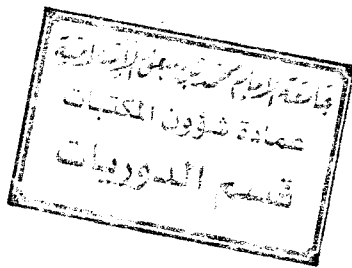 جامعة الإمام محمد بن سعود الإسلامية
عمادة شؤون المكتبات
قسم الدوريات